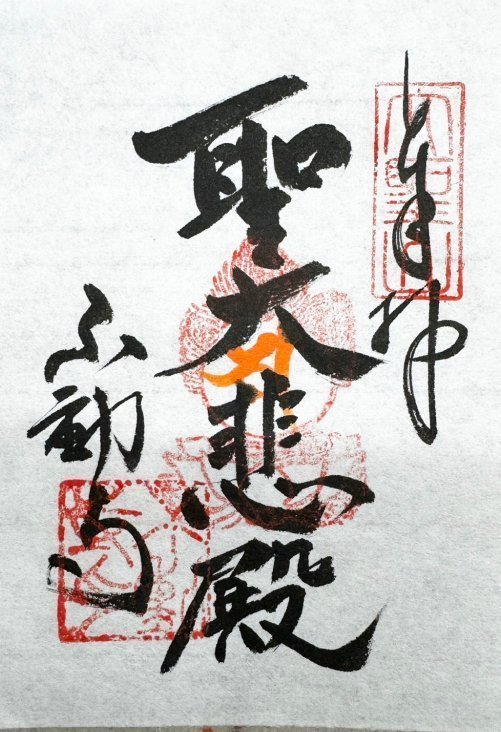 奉拝
聖大悲殿
不動寺